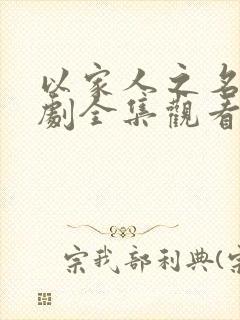 以家人之名
劇全集觀看
宗我部利典(宗